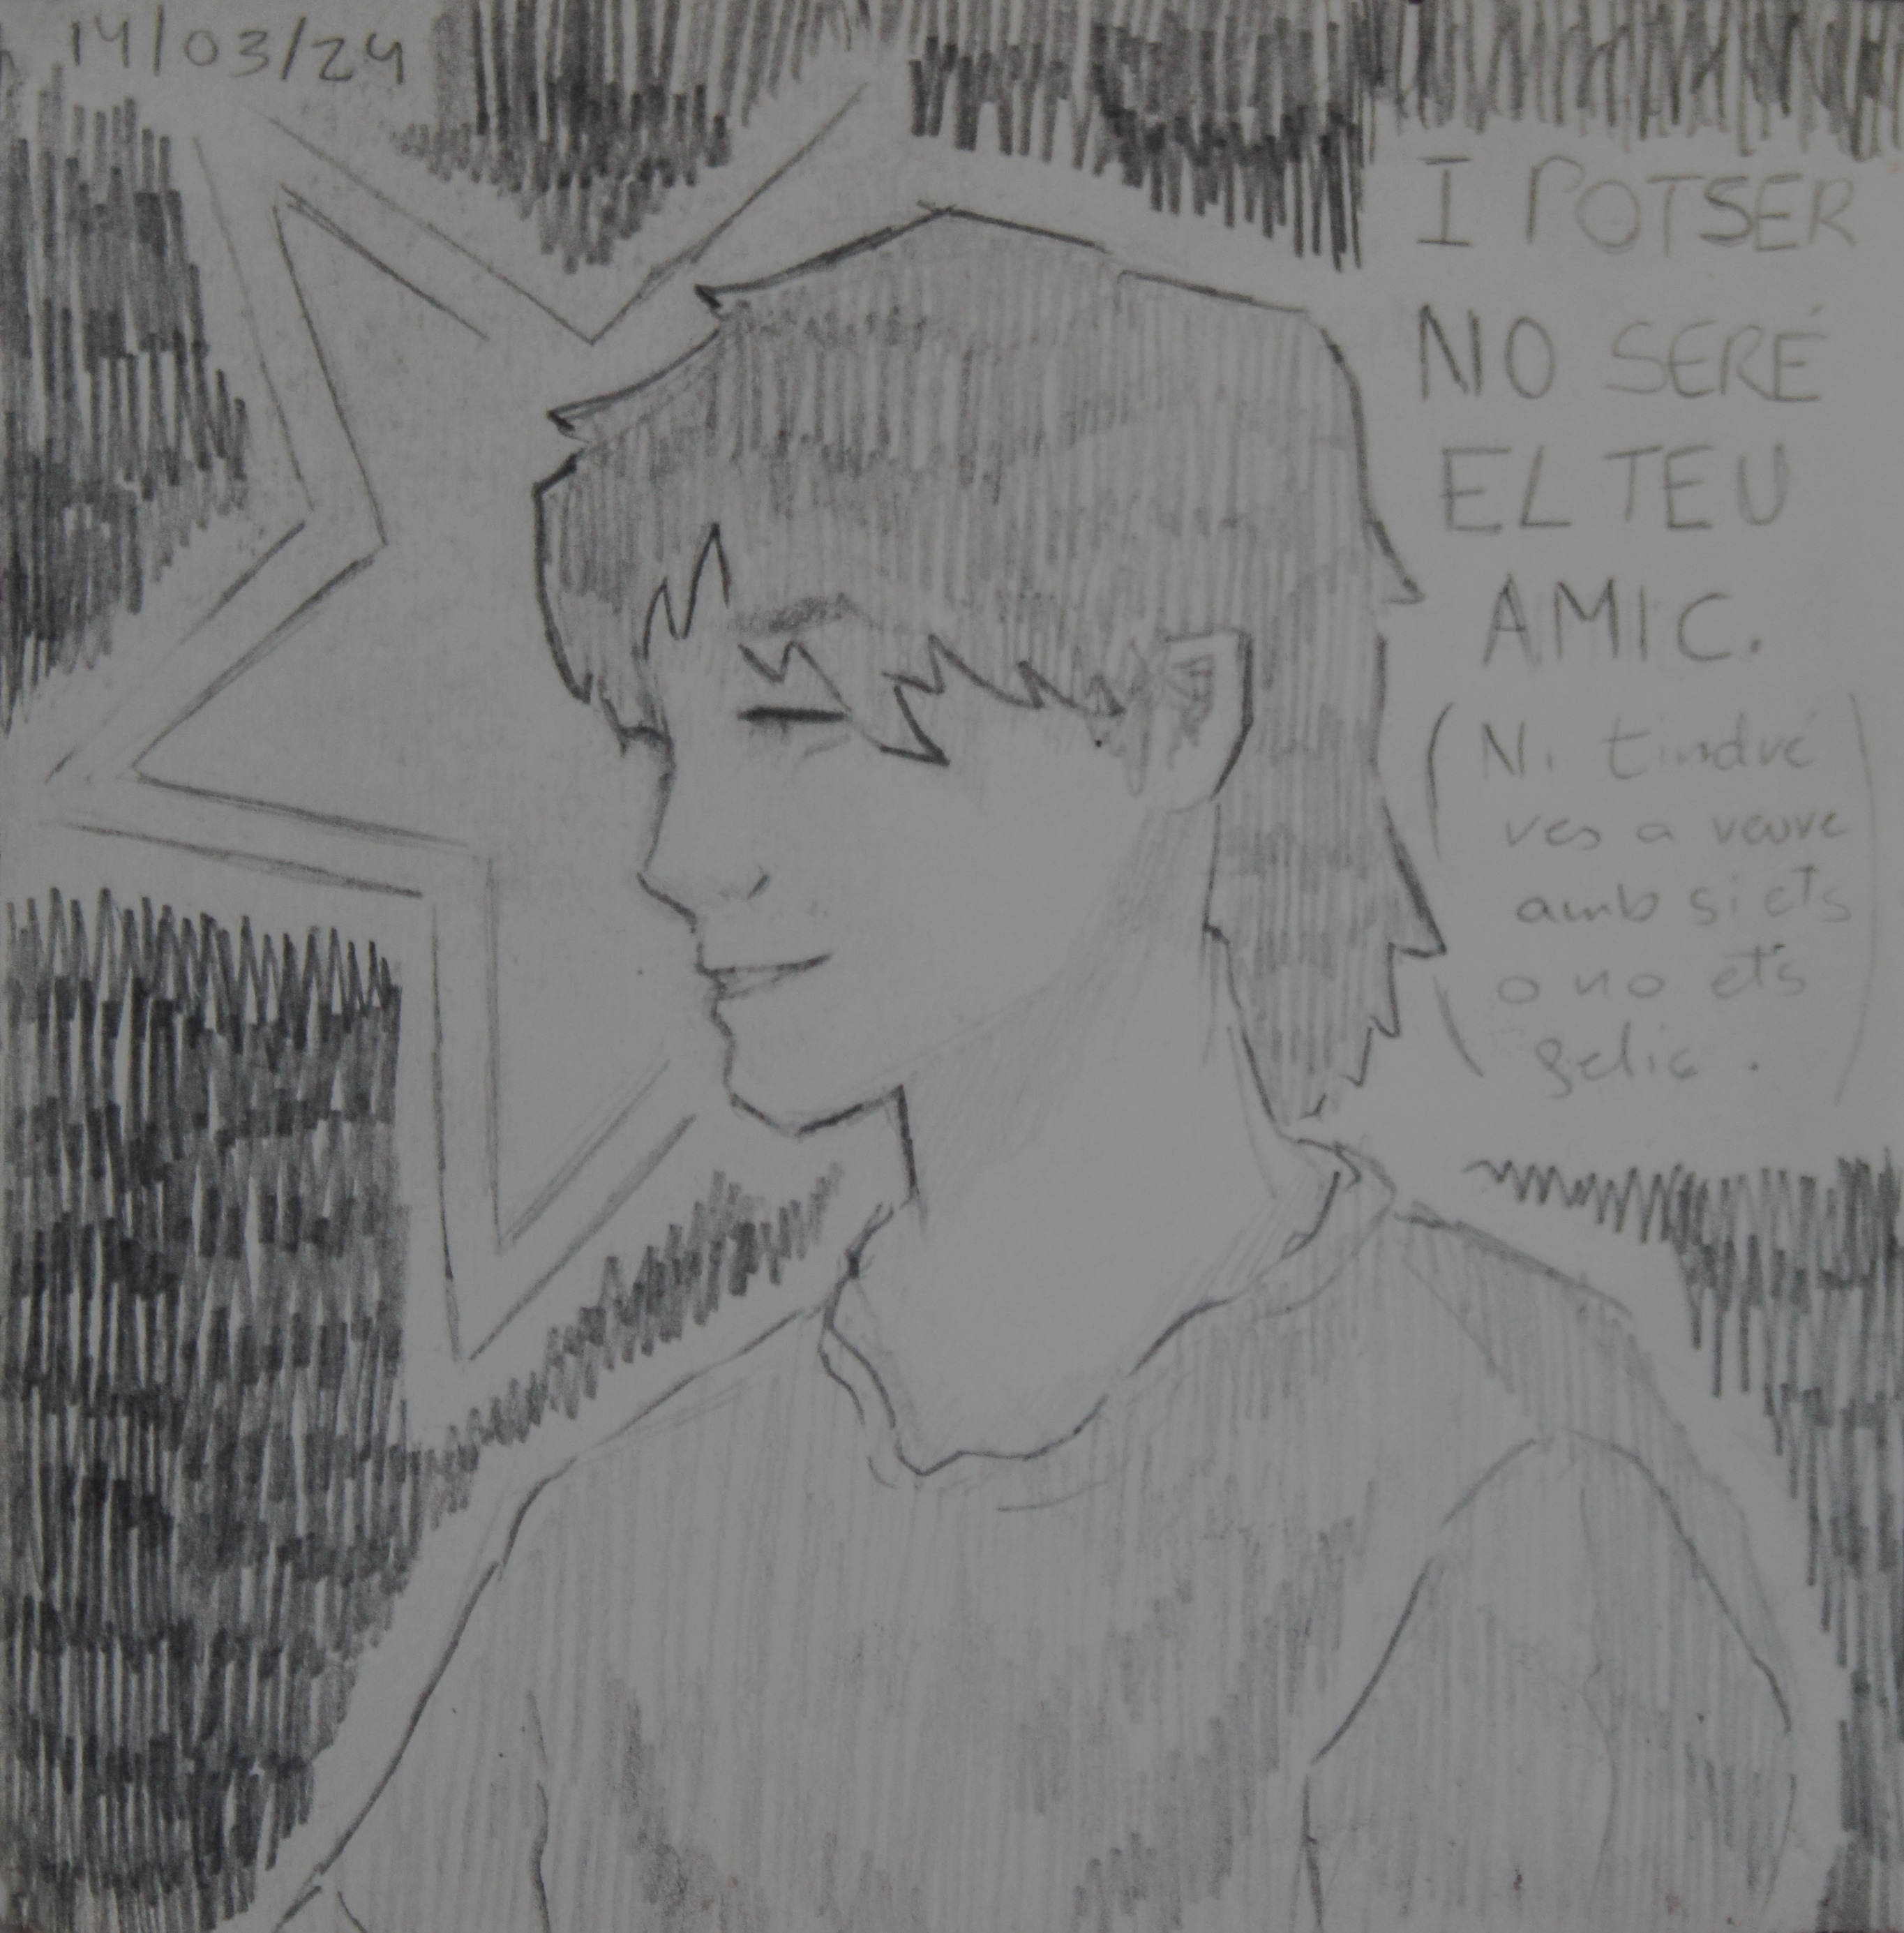 14/03/24
I POTSER
NO SERÉ
EL TEU
AMIC.
(Ni tindré
res a veure
amb si ets
o no ets
feliç.)